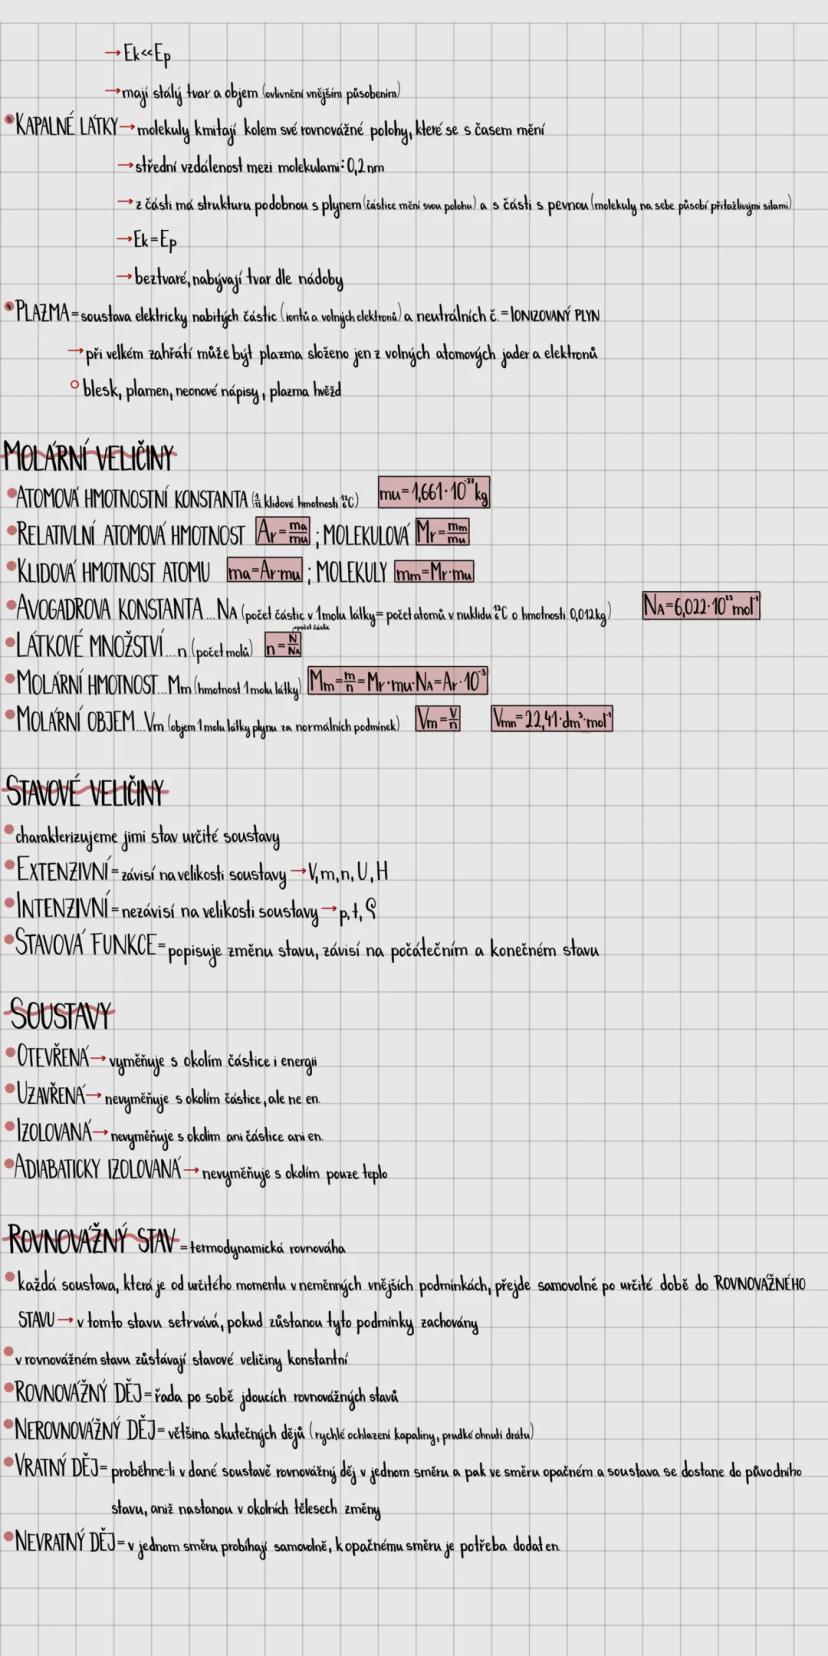 → Ek<<Ep
→ mají stálý tvar a objem (ovlivnění vnějším působením)
• KAPALNÉ LÁTKY → molekuly kmitají kolem své rovnovážné polohy, které se s časem mění
→ střední vzdálenost mezi molekulami: 0,2 nm
→ z části má strukturu podobnou s plynem (částice mění svou polohu) a s části s pevnou (molekuly na sebe působí přitažlivými silami)
→ Ek=Ep
→ beztvaré, nabývají tvar dle nádoby
• PLAZMA = soustava elektricky nabitých částic (iontů a volných elektronů) a neutrálních č. = IONIZOVANÝ PLYN
→ při velkém zahřátí může být plazma složeno jen z volných atomových jader a elektronů
○ blesk, plamen, neonové nápisy, plazma hvězd
MOLÁRNÍ VELIČINY
• ATOMOVÁ HMOTNOSTNÍ KONSTANTA (1/12 klidové hmotnosti ¹²₆C) mu = 1,661·10⁻²⁷ kg
• RELATIVLNÍ ATOMOVÁ HMOTNOST Ar = ma/mu ; MOLEKULOVÁ Mr = mm/mu
• KLIDOVÁ HMOTNOST ATOMU ma=Ar·mu ; MOLEKULY mm=Mr·mu
• AVOGADROVA KONSTANTA...NA (počet částic v 1molu látky = počet atomů v nuklidu ¹²₆C o hmotnosti 0,012kg) NA=6,022·10²³ mol⁻¹
• LÁTKOVÉ MNOŽSTVÍ...n (počet molů) n = N/NA počet částic
• MOLÁRNÍ HMOTNOST...Mm (hmotnost 1molu látky) Mm = m/n = Mr·mu·NA = Ar·10⁻³
• MOLÁRNÍ OBJEM...Vm (objem 1molu látky plynu za normálních podmínek) Vm = V/n Vmn = 22,41·dm³·mol⁻¹
STAVOVÉ VELIČINY
• charakterizujeme jimi stav určité soustavy
• EXTENZIVNÍ = závisí na velikosti soustavy → V, m, n, U, H
• INTENZIVNÍ = nezávisí na velikosti soustavy → p, t, ϱ
• STAVOVÁ FUNKCE = popisuje změnu stavu, závisí na počátečním a konečném stavu
SOUSTAVY
• OTEVŘENÁ → vyměňuje s okolím částice i energii
• UZAVŘENÁ → nevyměňuje s okolím částice, ale ne en.
• IZOLOVANÁ → nevyměňuje s okolím ani částice ani en.
• ADIABATICKY IZOLOVANÁ → nevyměňuje s okolím pouze teplo
ROVNOVÁŽNÝ STAV = termodynamická rovnováha
• každá soustava, která je od určitého momentu v neměnných vnějších podmínkách, přejde samovolně po určité době do ROVNOVÁŽNÉHO
STAVU → v tomto stavu setrvává, pokud zůstanou tyto podmínky zachovány
• v rovnovážném stavu zůstávají stavové veličiny konstantní
• ROVNOVÁŽNÝ DĚJ = řada po sobě jdoucích rovnovážných stavů
• NEROVNOVÁŽNÝ DĚJ = většina skutečných dějů (rychlé ochlazení kapaliny, prudké ohnutí drátu)
• VRATNÝ DĚJ = proběhne-li v dané soustavě rovnovážný děj v jednom směru a pak ve směru opačném a soustava se dostane do původního
stavu, aniž nastanou v okolních tělesech změny
• NEVRATNÝ DĚJ = v jednom směru probíhají samovolně, k opačnému směru je potřeba dodat en.